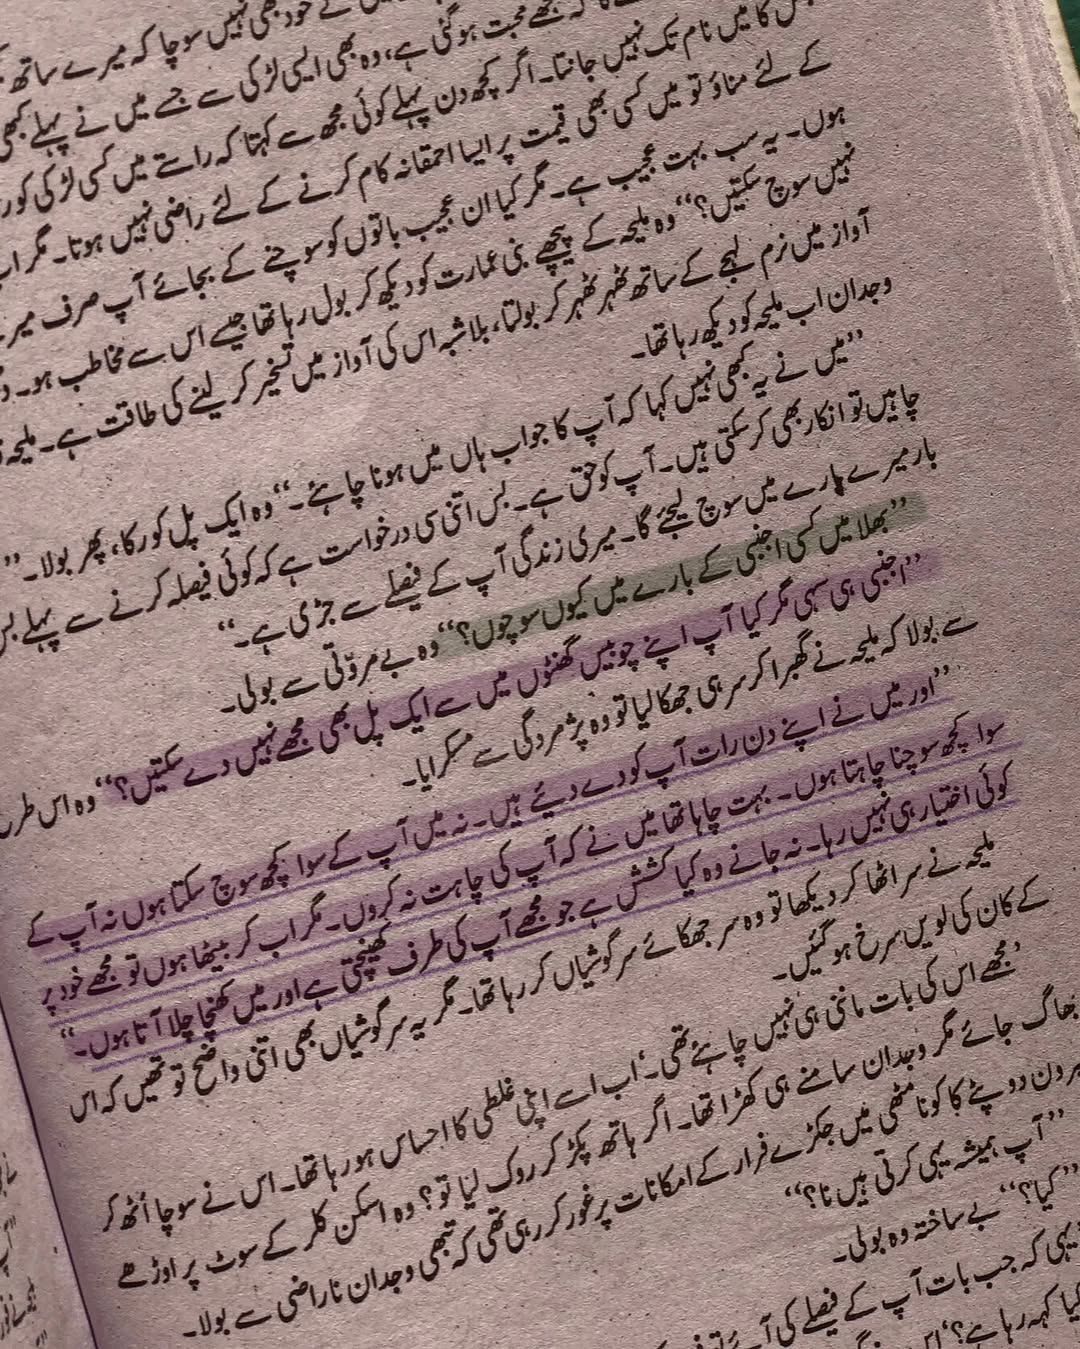 نے خود بھی نہیں سوچا کہ میرے ساتھ
کہ مجھے محبت ہوگئی ہے، وہ بھی ایسی لڑکی سے جسے میں نے پہلے کبھی
کا میں نام تک نہیں جانتا۔ اگر کچھ دن پہلے کوئی مجھ سے کہتا کہ راستے میں کسی لڑکی کو
کے لئے مناؤ تو میں کسی بھی قیمت پر ایسا احمقانہ کام کرنے کے لئے راضی نہیں ہوتا۔ مگر اب
ہوں۔ یہ سب بہت عجیب ہے۔ مگر کیا ان عجیب باتوں کو سوچنے کے بجائے آپ صرف
نہیں سوچ سکتیں؟“ وہ ملیحہ کے پیچھے بنی عمارت کو دیکھ کر بول رہا تھا جیسے اس سے مخاطب ہو۔
آواز میں نرم لہجے کے ساتھ ٹھہر ٹھہر کر بولتا، بلاشبہ اس کی آواز میں تسخیر کر لینے کی طاقت ہے۔ ملیحہ
وجدان اب ملیحہ کو دیکھ رہا تھا۔
”میں نے یہ کبھی نہیں کہا کہ آپ کا جواب ہاں میں ہونا چاہئے۔“ وہ ایک پل کو رکا، پھر بولا۔ ”
چاہیں تو انکار بھی کر سکتی ہیں۔ آپ کو حق ہے۔ بس اتنی سی درخواست ہے کہ کوئی فیصلہ کرنے سے پہلے
بار میرے بارے میں سوچ لیجئے گا۔ میری زندگی آپ کے فیصلے سے جڑی ہے۔“
”بھلا میں کسی اجنبی کے بارے میں کیوں سوچوں؟“ وہ بے مروّتی سے بولی۔
”اجنبی ہی سہی مگر کیا آپ اپنے چوبیس گھنٹوں میں سے ایک پل بھی مجھے نہیں دے سکتیں؟“ وہ اس طرح
سے بولا کہ ملیحہ نے گھبرا کر سر ہی جھکا لیا تو وہ پژمردگی سے مسکرایا۔
”اور میں نے اپنے دن رات آپ کو دے دیئے ہیں۔ نہ میں آپ کے سوا کچھ سوچ سکتا ہوں نہ آپ کے
سوا کچھ سوچنا چاہتا ہوں۔ بہت چاہا تھا میں نے کہ آپ کی چاہت نہ کروں۔ مگر اب کر بیٹھا ہوں تو مجھے خود پر
کوئی اختیار ہی نہیں رہا۔ نہ جانے وہ کیا کشش ہے جو مجھے آپ کی طرف کھینچتی ہے اور میں کھنچا چلا آتا ہوں۔“
ملیحہ نے سر اٹھا کر دیکھا تو وہ سر جھکائے سرگوشیاں کر رہا تھا۔ مگر یہ سرگوشیاں بھی اتنی واضح تو تھیں کہ اس
کے کان کی لویں سرخ ہوگئیں۔
’مجھے اس کی بات ماننی ہی نہیں چاہئے تھی۔‘ اب اسے اپنی غلطی کا احساس ہو رہا تھا۔ اس نے سوچا اُٹھ کر
بھاگ جائے مگر وجدان سامنے ہی کھڑا تھا۔ اگر ہاتھ پکڑ کر روک لیا تو؟ وہ اسکن کلر کے سوٹ پر اوڑھے
دوپٹے کا کونا مٹھی میں جکڑے فرار کے امکانات پر غور کر رہی تھی کہ تبھی وجدان ناراضی سے بولا۔
”آپ ہمیشہ یہی کرتی ہیں نا؟“
”کیا؟“ بے ساختہ وہ بولی۔
یہی کہ جب بات آپ کے فیصلے کی آئے تو
کیا کہہ رہا ہے؟‘ اس